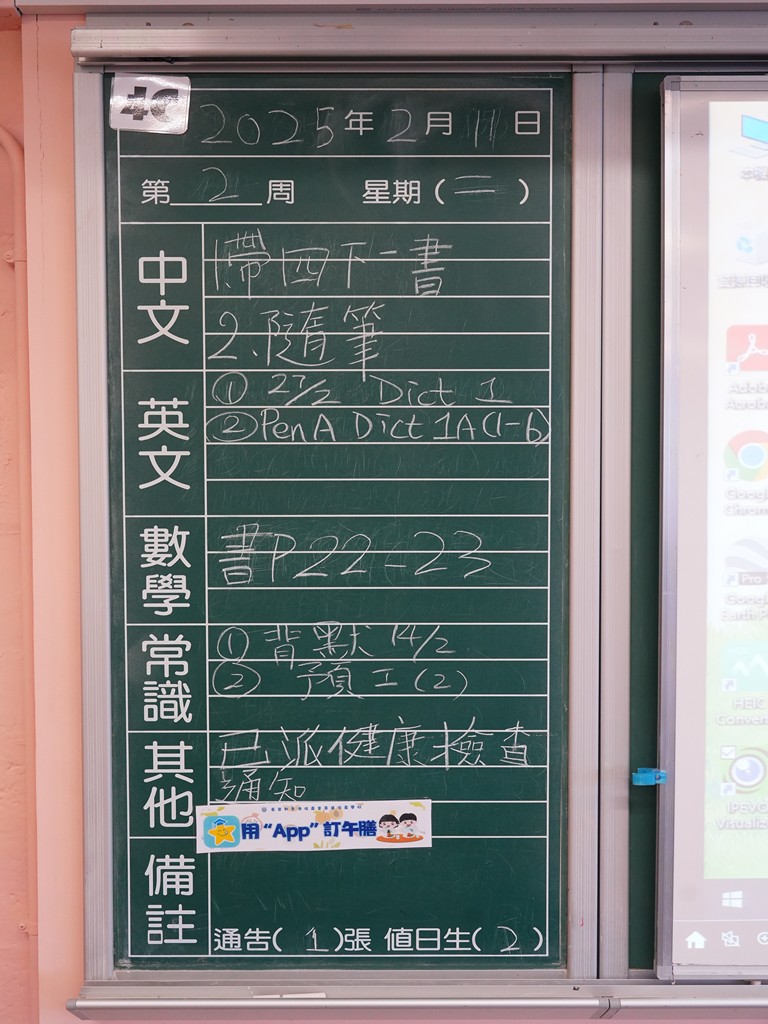 4C
2025年2月11日
第2周 星期(二)
中文
1.帶四下一書
2.隨筆
英文
① 27/2 Dict 1
② Pen A Dict 1A (1-6)
數學
書P22-23
常識
① 背默 14/2
② 預工(2)
其他
已派健康檢查
通知
用“App”訂午膳
備註
通告(1)張 值日生(2)
Google
Chrome
Google
Earth Pro
HEIC